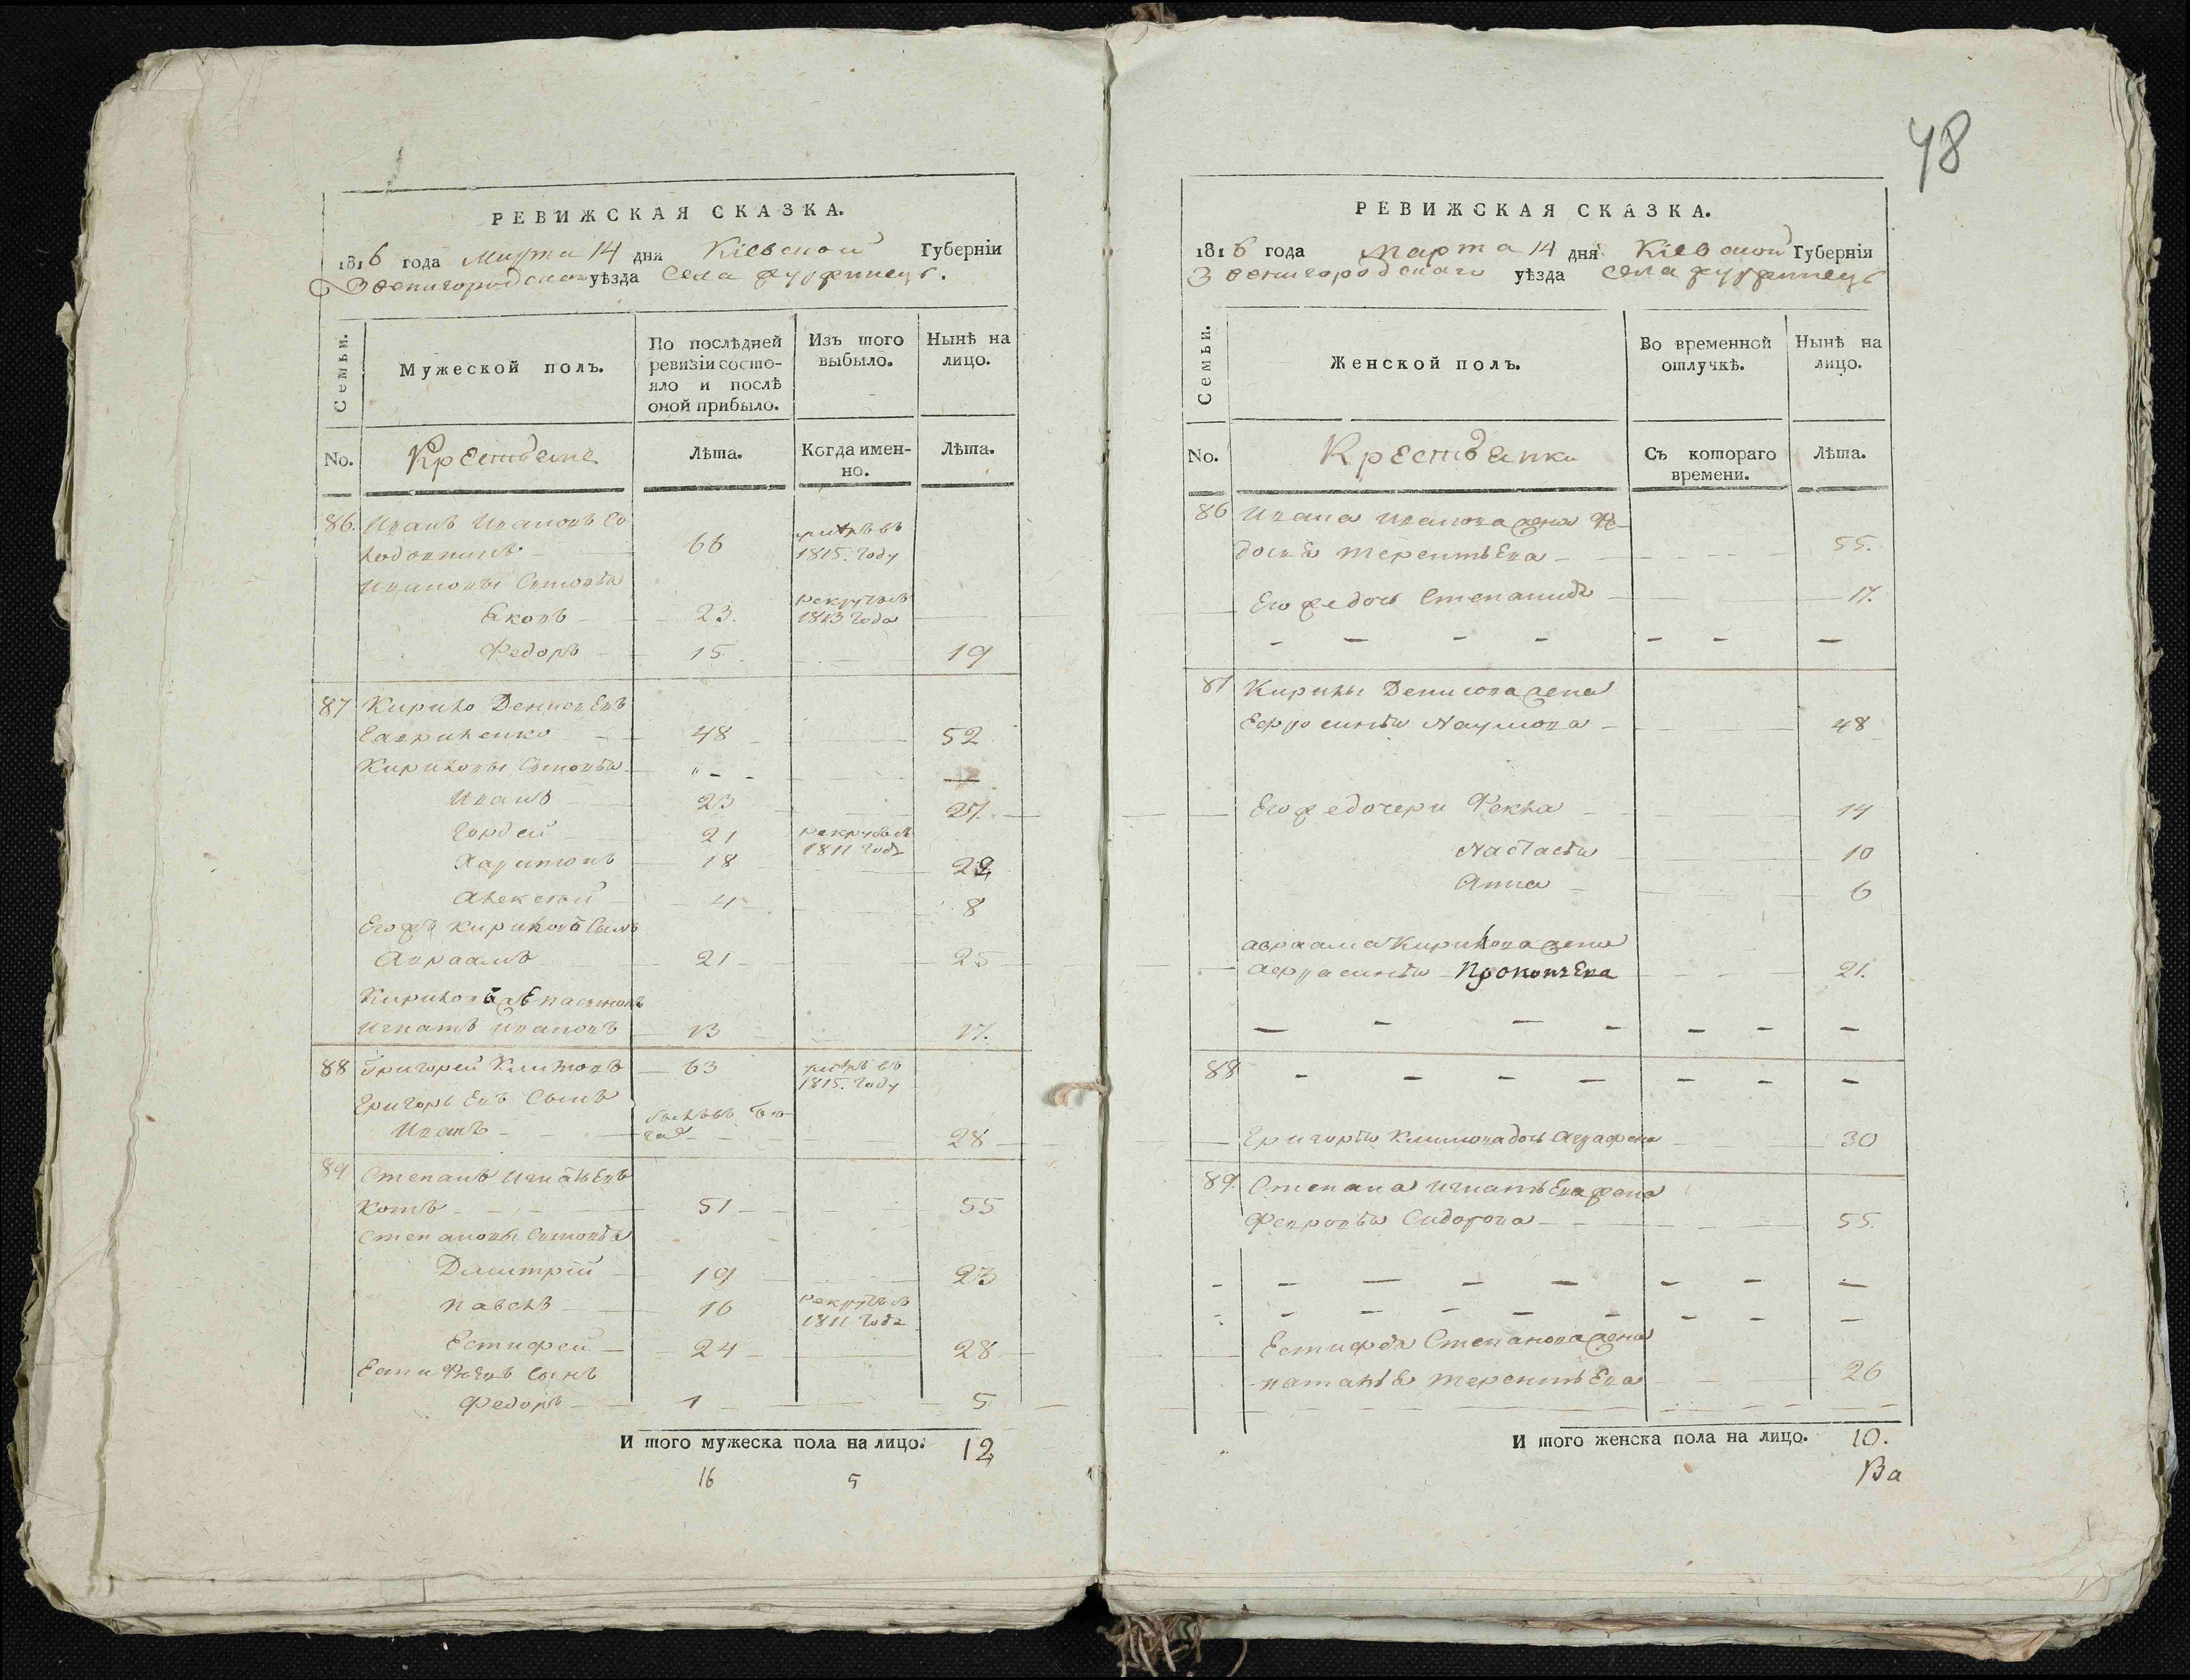 48
РЕВИЖСКАЯ СКАЗКА.
1816 года Марта 14 дня Кіевской Губерніи
Звенигородского уѣзда Села
Семьи.
Мужеской полъ.
По послѣдней ревизіи состояло и послѣ оной прибыло.
Изъ того выбыло.
Нынѣ на лицо.
No.
Крестьяне
Лѣта.
Когда именно.
Лѣта.
86. Иванъ Ивановъ Со
66
1815. году
Ивановы Сыновья
Яковъ 23. рекрутъ въ
1813 года
Федоръ 15 19
87 Кирило Денисьевъ
Гавриленко 48 52
Кириловы Сыновья
Иванъ 23 27.
Гордей 21 рекрутъ въ
1811 года
Харитонъ 18 22
Алексей 4 8
Егожъ Кирилова Сынъ
Авраамъ 21 25
Кирилова
Игнатъ Ивановъ 13 17.
88 Григорей Климовъ 63
1815. году
Григорьевъ Сынъ
Иванъ 28
89 Степанъ Игнатьевъ
Котъ 51 55
Степановы Сыновья
Дмитрій 19 23
Павелъ 16 рекрутъ въ
1811 года
Естифей 24 28
Естифѣевъ Сынъ
Федоръ 1 5
И того мужеска пола на лицо. 12
16 5
РЕВИЖСКАЯ СКАЗКА.
1816 года Марта 14 дня Кіевской Губерніи
Звенигородскаго уѣзда Села
Семьи.
Женской полъ.
Во временной отлучкѣ.
Нынѣ на лицо.
No.
Крестьянки
Съ котораго времени.
Лѣта.
86 Ивана Иванова жена Фе-
досья Терентьева 55.
Егожедочь Степанида 17.
87 Кирилы Денисова жена
Ефросинья Наумова 48
Егожедочери Фекла 14
Настасья 10
Анна 6
Авраама Кирилова жена
Афросинья Прокопьева 21.
88
Григорья Климова дочь Аграфена 30
89. Степана Игнатьева жена
Февронья Сидорова 55.
Естифея Степанова жена
Наталья Терентьева 26
И того женска пола на лицо. 10.
Ва